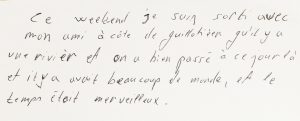 Ce weekend je suis sorti avec
mon ami à côte de guillotière qu'il y a
une rivièr et on a bien passé à ce jour là
et il y a avait beaucoup de monde, et le
temps était merveilleux.